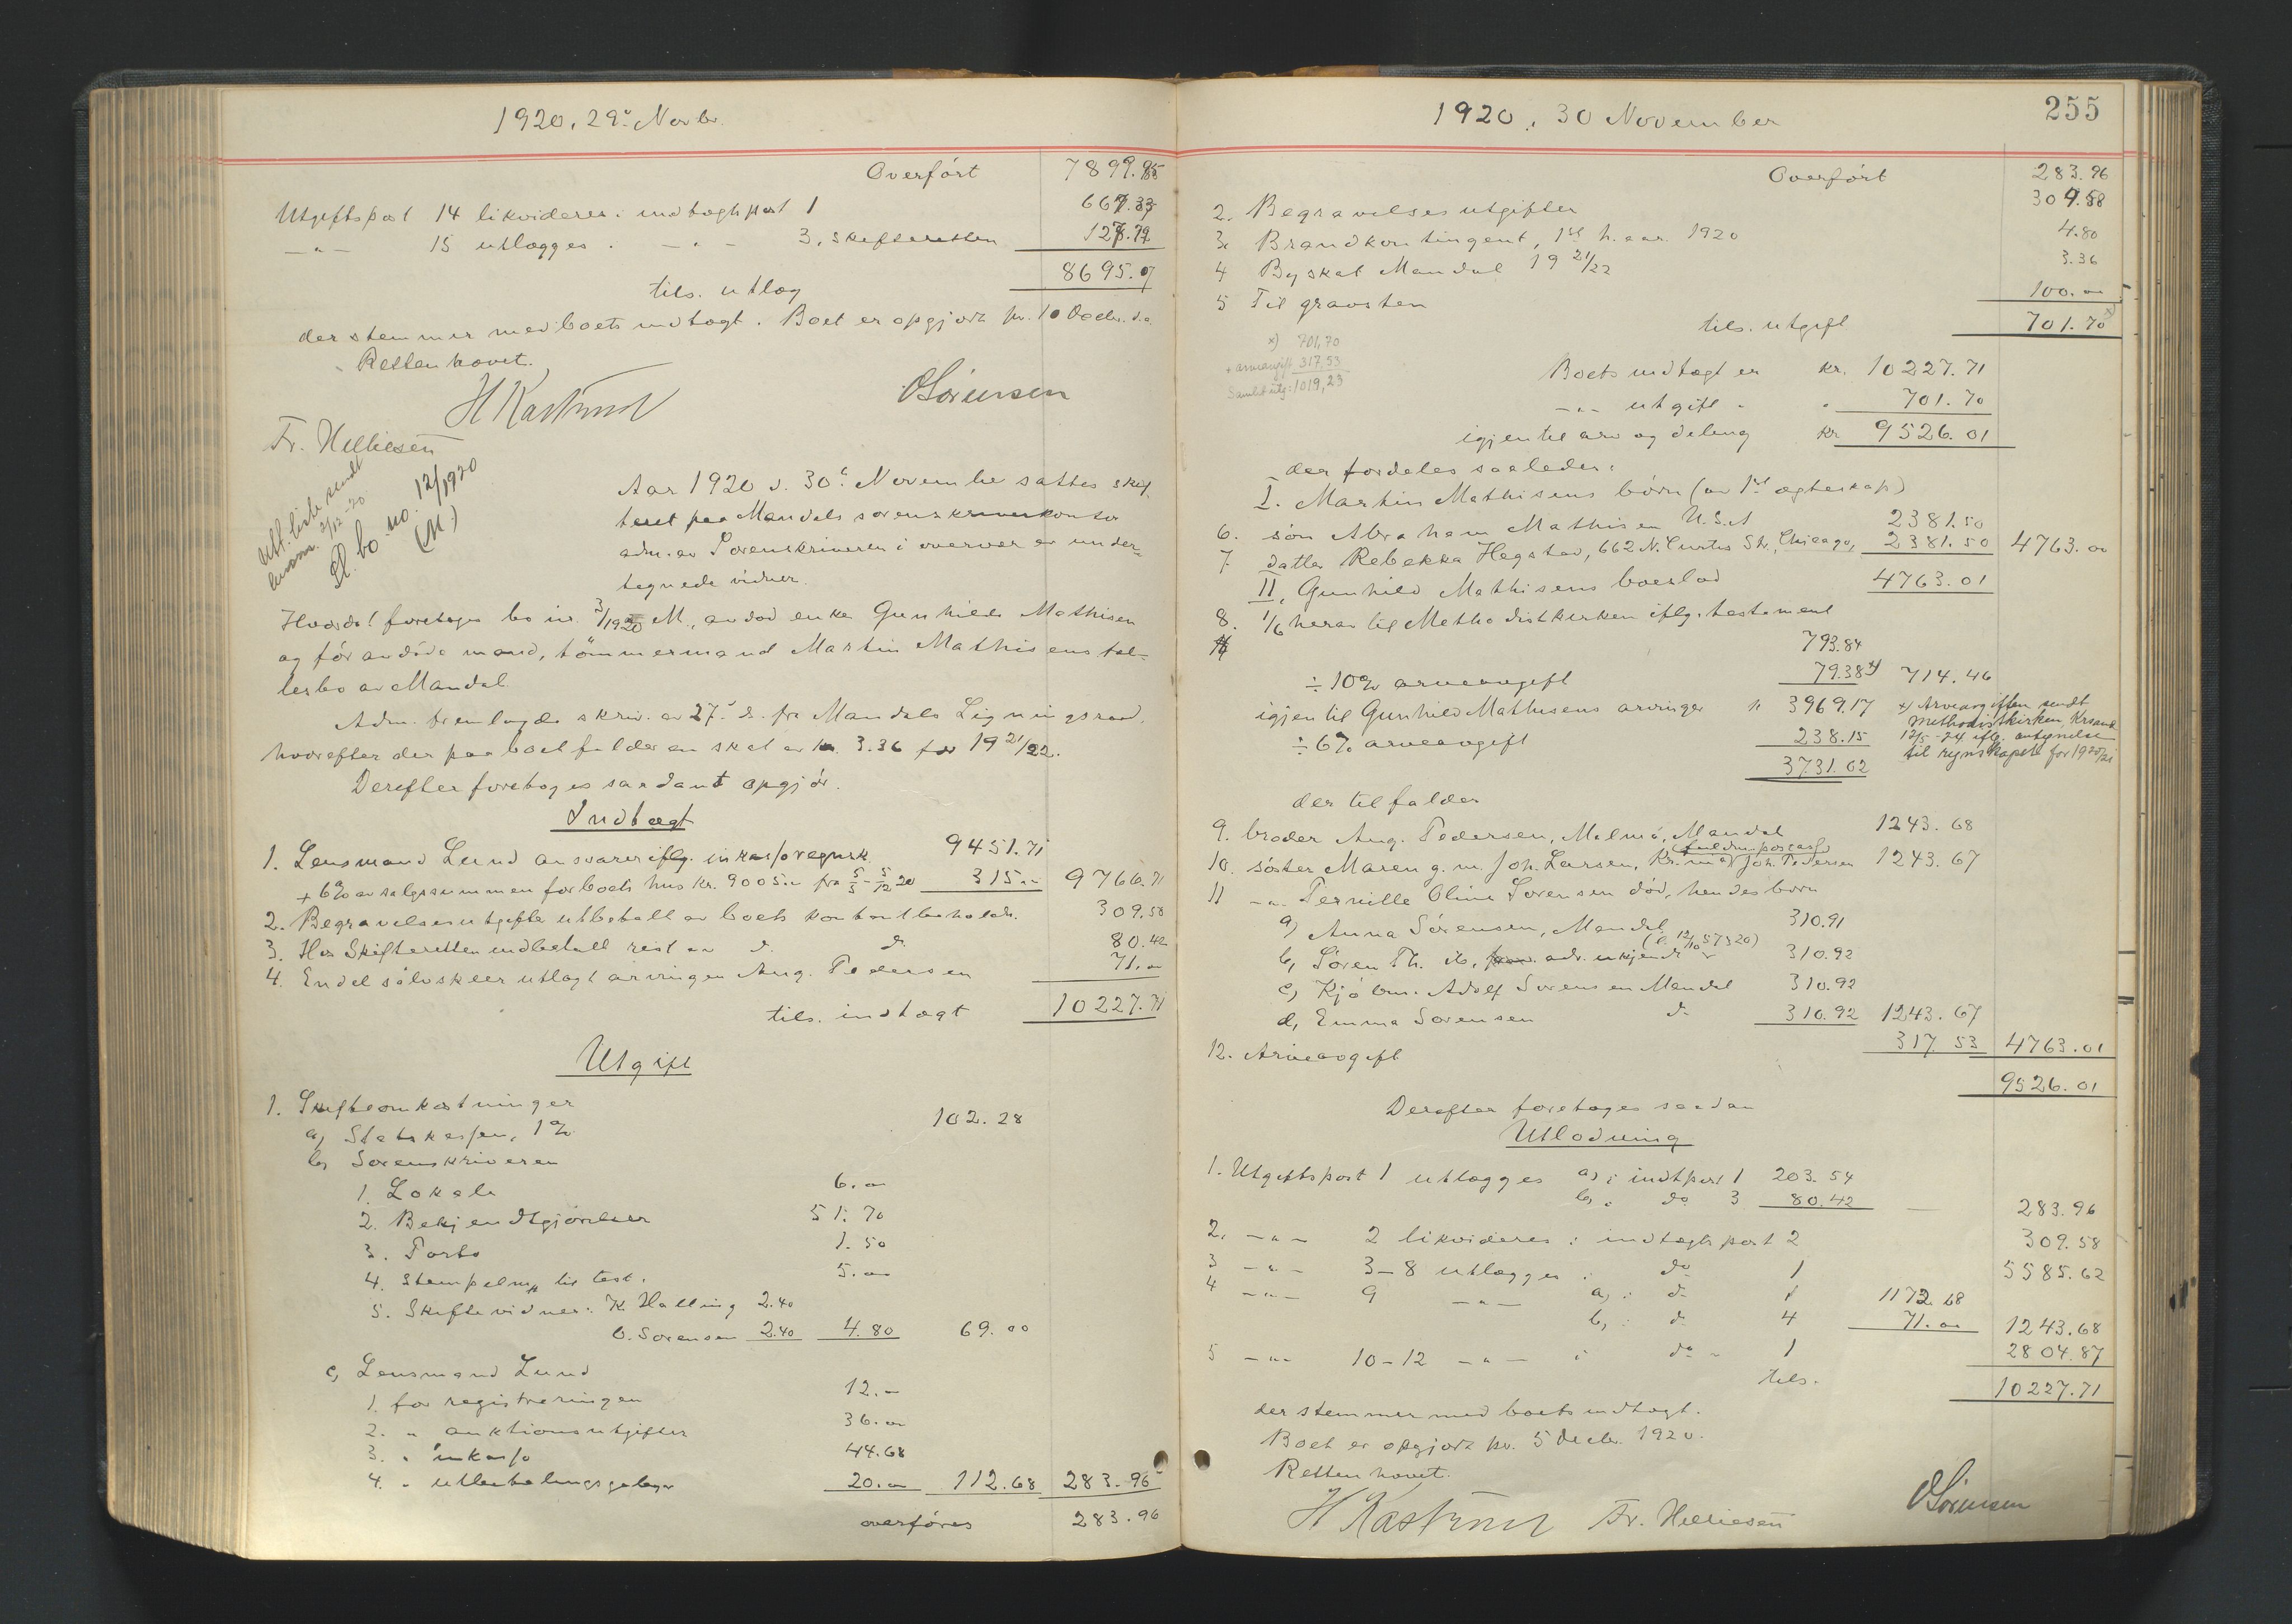 1920, 29 Novbr.
Overført 7899.95
Utgiftspost 14 likvideres i indtægtspost 1 667.33
—"— 15 utlægges i —"— 3, skifteretten 127.79
tils. utlæg 8695.07
der stemmer med boets indtægt. Boet er opgjort pr. 10 Decbr. d.a.
Retten hævet.
H Kastrud OSørensen
Fr. Helliesen
Aar 1920 d. 30te November sattes skif-
teret paa Mandals sorenskriverkontor
adm. av Sorenskriveren i overvær av under-
tegnede vidner.
Hvorda! foretages bo nr. 3/1920 M., avdød enke Gunhild Mathisen
og før avdøde mand, tømmermand Martin Mathisens fæl-
lesbo av Mandal.
Adm. fremlagde skriv. av 27. ds. fra Mandals Ligningsraad,
hvorefter der paa boet falder en skat av kr. 3.36 for 19 21/22.
Derefter foretages saadant opgjør.
Indtægt
1. Lensmand Lund ansvarer iflg. inkassoregnsk. 9451.71
+ 6% av salgssummen for boets hus kr. 9005.00 fra 5/5 - 5/12 20 315.00 9766.71
2. Begravelsesutgifter utbetalt av boets kontantbeholdn. 309.58
3. Hos Skifteretten indbetalt rest av d. d. 80.42
4. Endel sølvskeer utlagt arvingen Aug. Pedersen 71.00
tils. indtægt 10227.71
Utgift
1. Skifteomkostninger
a, Statskassen, 1% 102.28
b, Sorenskriveren
1. Lokale 6.00
2. Bekjendtgjørelser 51.70
3. Porto 1.50
4. Stempelm. til test. 5.00
5. Skiftevidner: K. Halling 2.40
O. Sørensen 2.40 4.80 69.00
c, Lensmand Lund
1. for registreringen 12.—
2. " auktionsutgifter 36.00
3. " inkasso 44.68
4. " utbetalingsgebyr 20.00 112.68 283.96
overføres 283.96
1920. 30 November
255
Overført 283.96
2. Begravelsesutgifter 309.58
3. Brandkontingent, 1ste h. aar. 1920 4.80
4 Byskat Mandal 19 21/22 3.36
5 Til gravsten 100.00
tils. utgift 701.70 x)
x) 701,70
+ arveavgift 317,53
Samlet utg: 1019,23
Boets indtægt er kr. 10227.71
—"— utgift " " 701.70
igjen til arv og deling kr 9526.01
der fordeles saaledes:
I. Martin Mathisens børn (av 1ste egteskap)
6. søn Abraham Mathisen U.S.A 2381.50
7 datter Rebekka Hegstad, 662 N. Curtis Str., Chicago, 2381.50 4763.00
II, Gunhild Mathisens boeslod 4763.01
8. 1/6 herav til Methodistkirken iflg. testament
793.84
÷ 10% arveavgift 79.38 x) 714.46
igjen til Gunhild Mathisens arvinger kr 3969.17
x) Arveavgiften sendt
Methodistkirken, Krsand
12/5-24 iflg. antegnelse
til regnskapet for 1920/21
÷ 6% arveavgift 238.15
3731.02
der tilfalder
9. broder Aug. Pedersen, Malmø, Mandal 1243.68
10. søster Maren g. m. Joh. Larsen, Kr. 1243.67
11 —"— Pernille Oline Sørensen død, hendes børn
a) Anna Sørensen, Mandal 310.91
b, Søren Th. do, adr. ukjendt 310.92
c, Kjøbm. Adolf Sørensen Mandal 310.92
d, Emma Sørensen d. 310.92 1243.67
12. Arveavgift 317.53 4763.01
9526.01
Derefter foretages saadan
Utlodning
1. Utgiftspost 1 utlægges a, i indtpost 1 203.54
b, i do 3 80.42 283.96
2, —"— 2 likvideres i indtægtspost 2 309.58
3 —"— 3–8 utlægges i do 1 5585.62
4 —"— 9 —"— a, i d. 1 1172.68
b, i d. 4 71.00 1243.68
5 —"— 10–12 —"— i do 1 2804.87
tils. 10227.71
der stemmer med boets indtægt.
Boet er opgjort pr. 5 Decbr. 1920.
Retten hævet.
H Kastrud Fr. Helliesen OSørensen